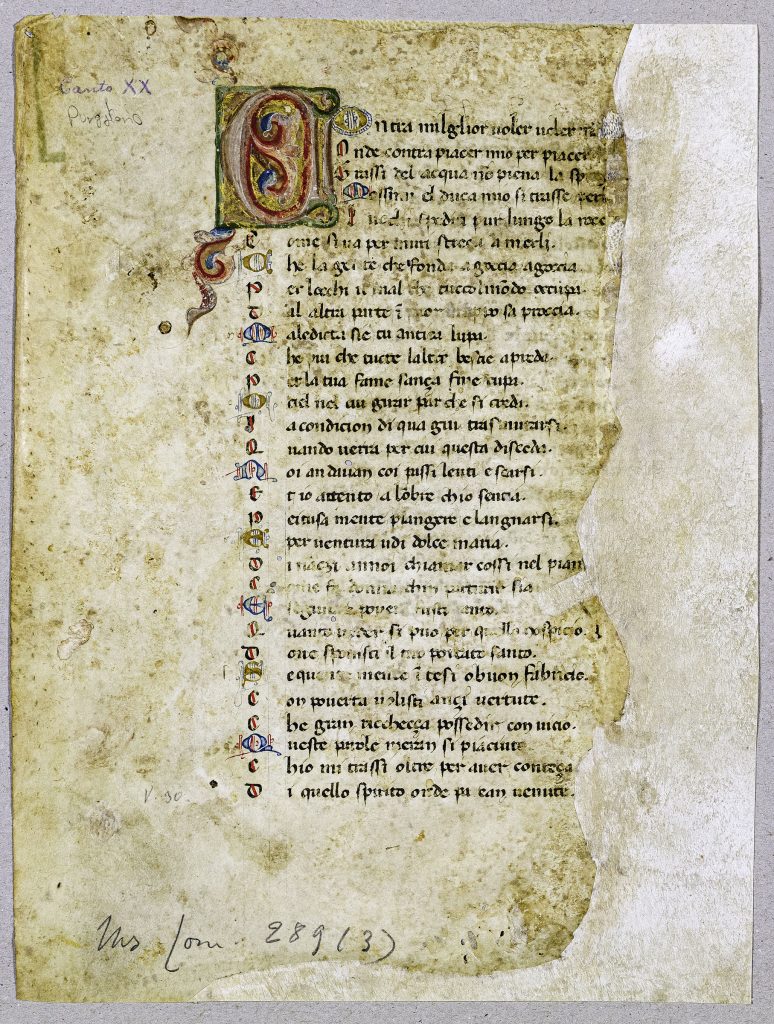 Canto XX
Purgatorio
ontra milglior voler voler
Onde contra piacer mio per piacer
Trassi del acqua nō piena la sp
Mossimi el duca mio si trasse
pur lungo la rocc
Come si va per muri strecti a merli.
Che la gente che fonda a gocia a goccia
Per liochi il mal che tuccol mōdo occupa.
Dal altra parte ī fuor troppo sa proccia.
Maledicta sie tu antica lupa.
Che piu che tucte laltre bestie ai preda.
Per la tua fame sança fine cupa.
O ciel nel cui girar par che si credi.
La condicion di qua giu trasmutarsi.
Quando verra per cui questa disceda.
Noi andiuan coi passi lenti e scarsi.
Et io attento a lōbre chio sentia.
Pietosa mente piangere e langnarsi.
E per ventura udi dolce maria.
Dinançi annoi chiamar cossi nel pian
Come fa donna chin parturir sia
E seguir povera fusti tanto.
Quanto veder si puo per quello hospicio.
Doue sponisti il tuo portato santo.
Sequente mente ītesi o buon fabricio.
Con poverta volisti ançi vertute.
Che gran ricchecça posseder con vicio.
Queste parole meran si piaciute
Chio mi trassi oltre per aver conteça
Di quello spirito onde parean venute.
V. 30.
Ms Lom. 289 (3)